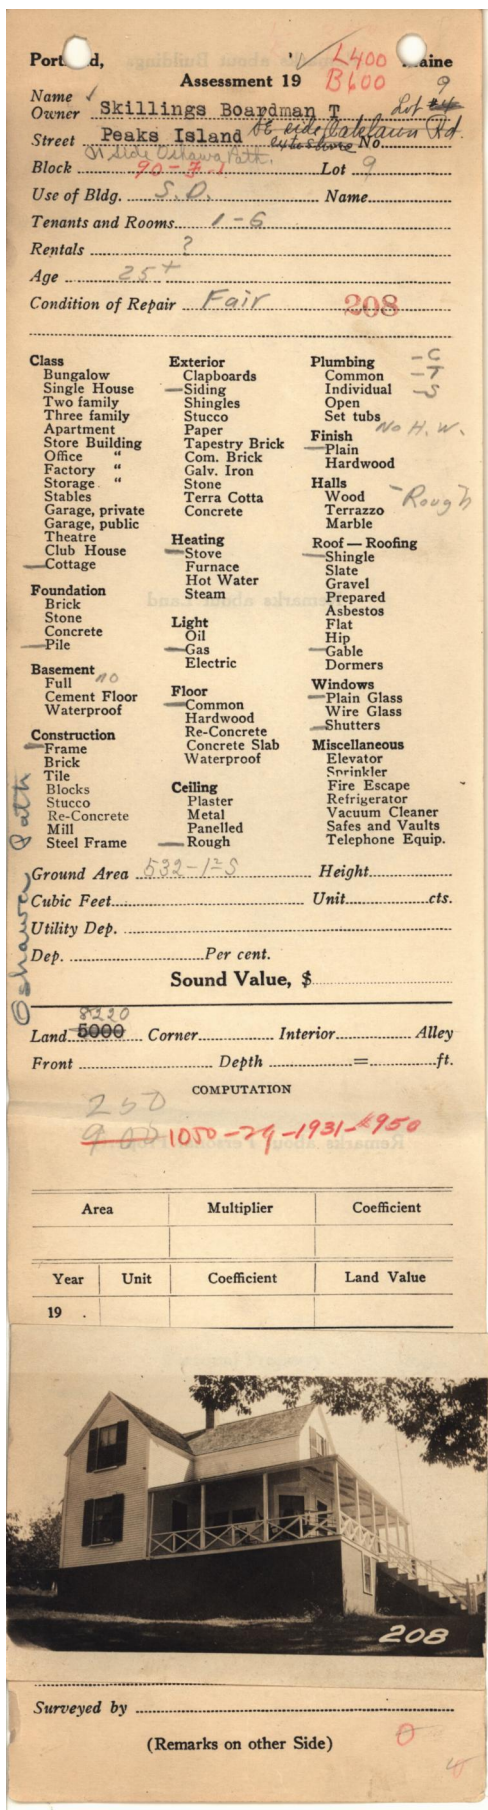 Portland, Maine
✓ L400
Assessment 19 B600
Name ✓ 9
Owner Skillings Boardman T Lot #4
Street Peaks Island SE side Oaklawn Rd.
No.
N side Oshawa Path.
Block 90-F-1 Lot 9
Use of Bldg. S.D. Name
Tenants and Rooms 1-6
Rentals ?
Age 25+
Condition of Repair Fair 208
Class
Bungalow
Single House
Two family
Three family
Apartment
Store Building
Office "
Factory "
Storage "
Stables
Garage, private
Garage, public
Theatre
Club House
Cottage
Foundation
Brick
Stone
Concrete
Pile
Basement
Full no
Cement Floor
Waterproof
Construction
Frame
Brick
Tile
Blocks
Stucco
Re-Concrete
Mill
Steel Frame
Exterior
Clapboards
Siding
Shingles
Stucco
Paper
Tapestry Brick
Com. Brick
Galv. Iron
Stone
Terra Cotta
Concrete
Heating
Stove
Furnace
Hot Water
Steam
Light
Oil
Gas
Electric
Floor
Common
Hardwood
Re-Concrete
Concrete Slab
Waterproof
Ceiling
Plaster
Metal
Panelled
Rough
Plumbing -C
Common -T
Individual -S
Open
Set tubs
No H.W.
Finish
Plain
Hardwood
Halls
Wood -Rough
Terrazzo
Marble
Roof — Roofing
Shingle
Slate
Gravel
Prepared
Asbestos
Flat
Hip
Gable
Dormers
Windows
Plain Glass
Wire Glass
Shutters
Miscellaneous
Elevator
Sprinkler
Fire Escape
Refrigerator
Vacuum Cleaner
Safes and Vaults
Telephone Equip.
Oshawa Path
Ground Area 532-1=S Height
Cubic Feet Unit cts.
Utility Dep.
Dep. Per cent.
Sound Value, $
8220
Land 5000 Corner Interior Alley
Front Depth = ft.
COMPUTATION
250
900 1050-29-1931-$950
Area Multiplier Coefficient
Year Unit Coefficient Land Value
19 .
208
Surveyed by
(Remarks on other Side)